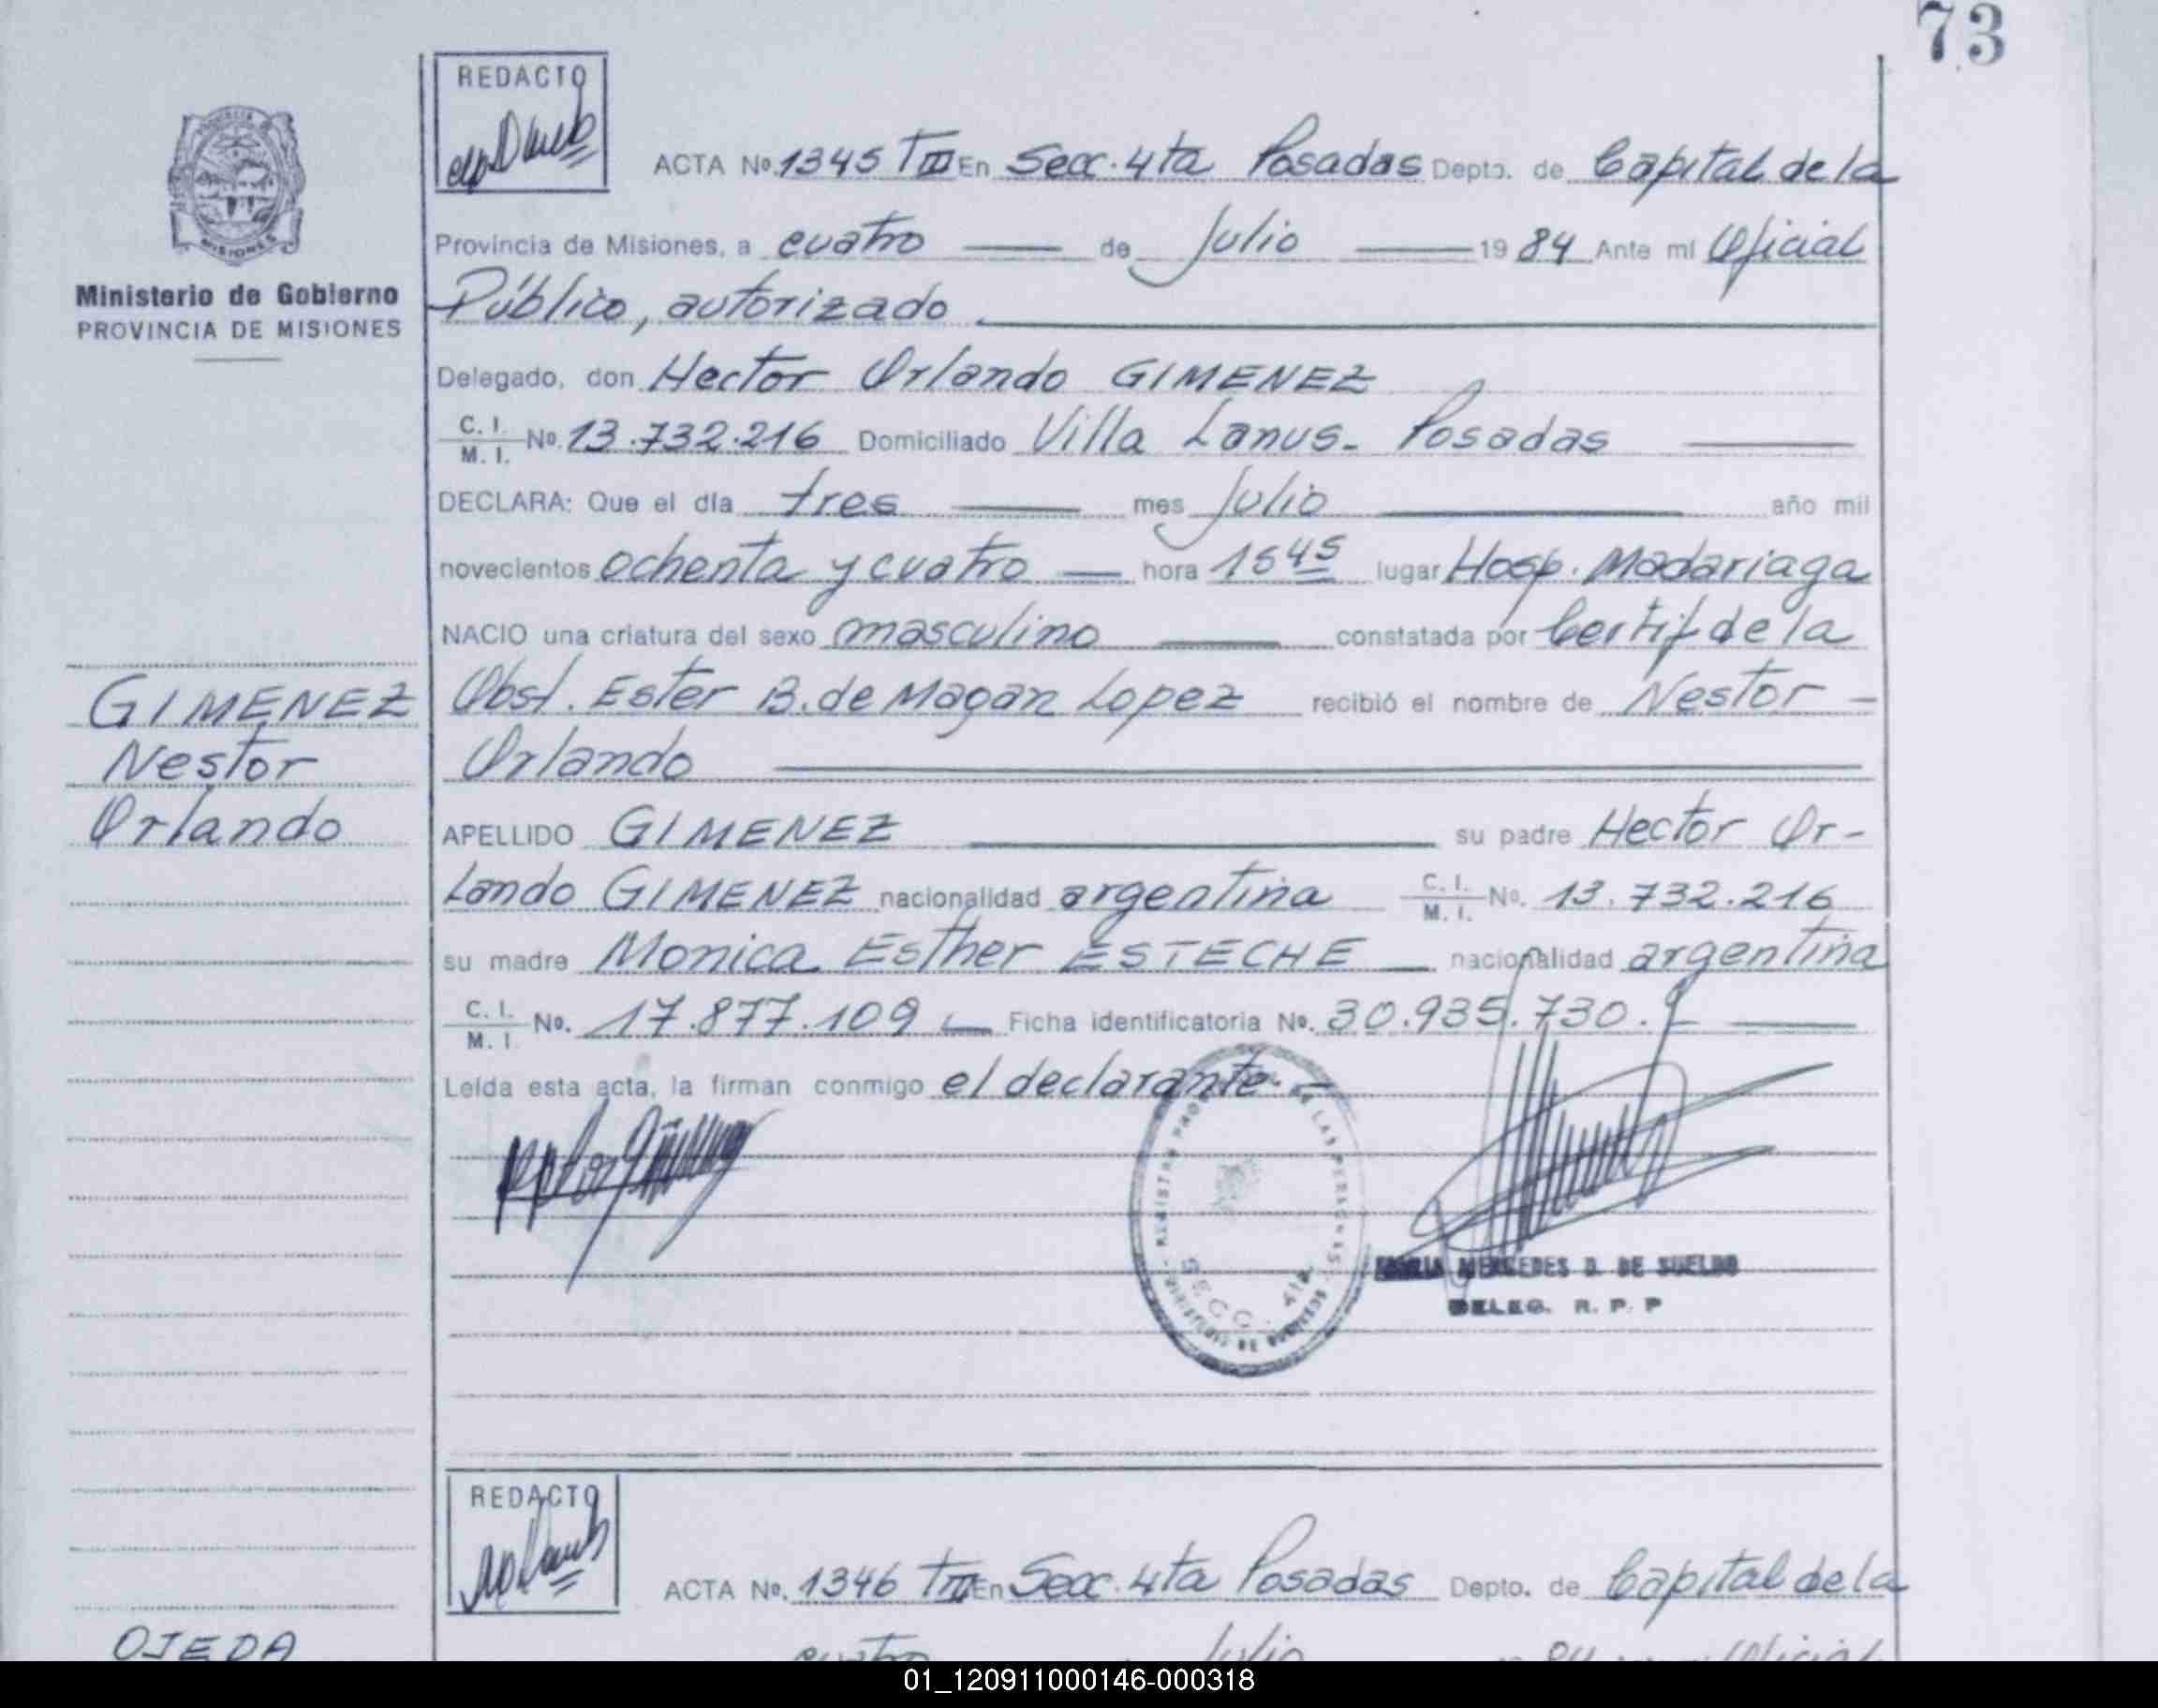 73
REDACTO
ACTA No. 1345 TIII En Secc. 4ta Posadas Depto. de Capital de la
Provincia de Misiones, a cuatro de Julio 1984 Ante mí Oficial
Público, autorizado
MISIONES
Ministerio de Gobierno
PROVINCIA DE MISIONES
Delegado, don Hector Orlando GIMENEZ
C. I. M. I. No. 13.732.216 Domiciliado Villa Lanus - Posadas
DECLARA: Que el día tres mes Julio año mil
novecientos ochenta y cuatro hora 1545 lugar Hosp. Madariaga
NACIO una criatura del sexo masculino constatada por Certif de la
Obst. Ester B. de Magan Lopez recibió el nombre de Nestor -
Orlando
GIMENEZ
Nestor
Orlando
APELLIDO GIMENEZ su padre Hector Or-
lando GIMENEZ nacionalidad argentina C. I. M. I. No. 13.732.216
su madre Monica Esther ESTECHE nacionalidad argentina
C. I. M. I No. 17.877.109 Ficha identificatoria No. 30.935.730.
Leída esta acta, la firman conmigo el declarante. -
SECC. 4ta.
MERCEDES D. DE SUELDO
DELEG. R. P. P
REDACTO
ACTA No. 1346 TIII En Secc. 4ta Posadas Depto. de Capital de la
OJEDA
cuatro Julio 84 Oficial
01_120911000146-000318